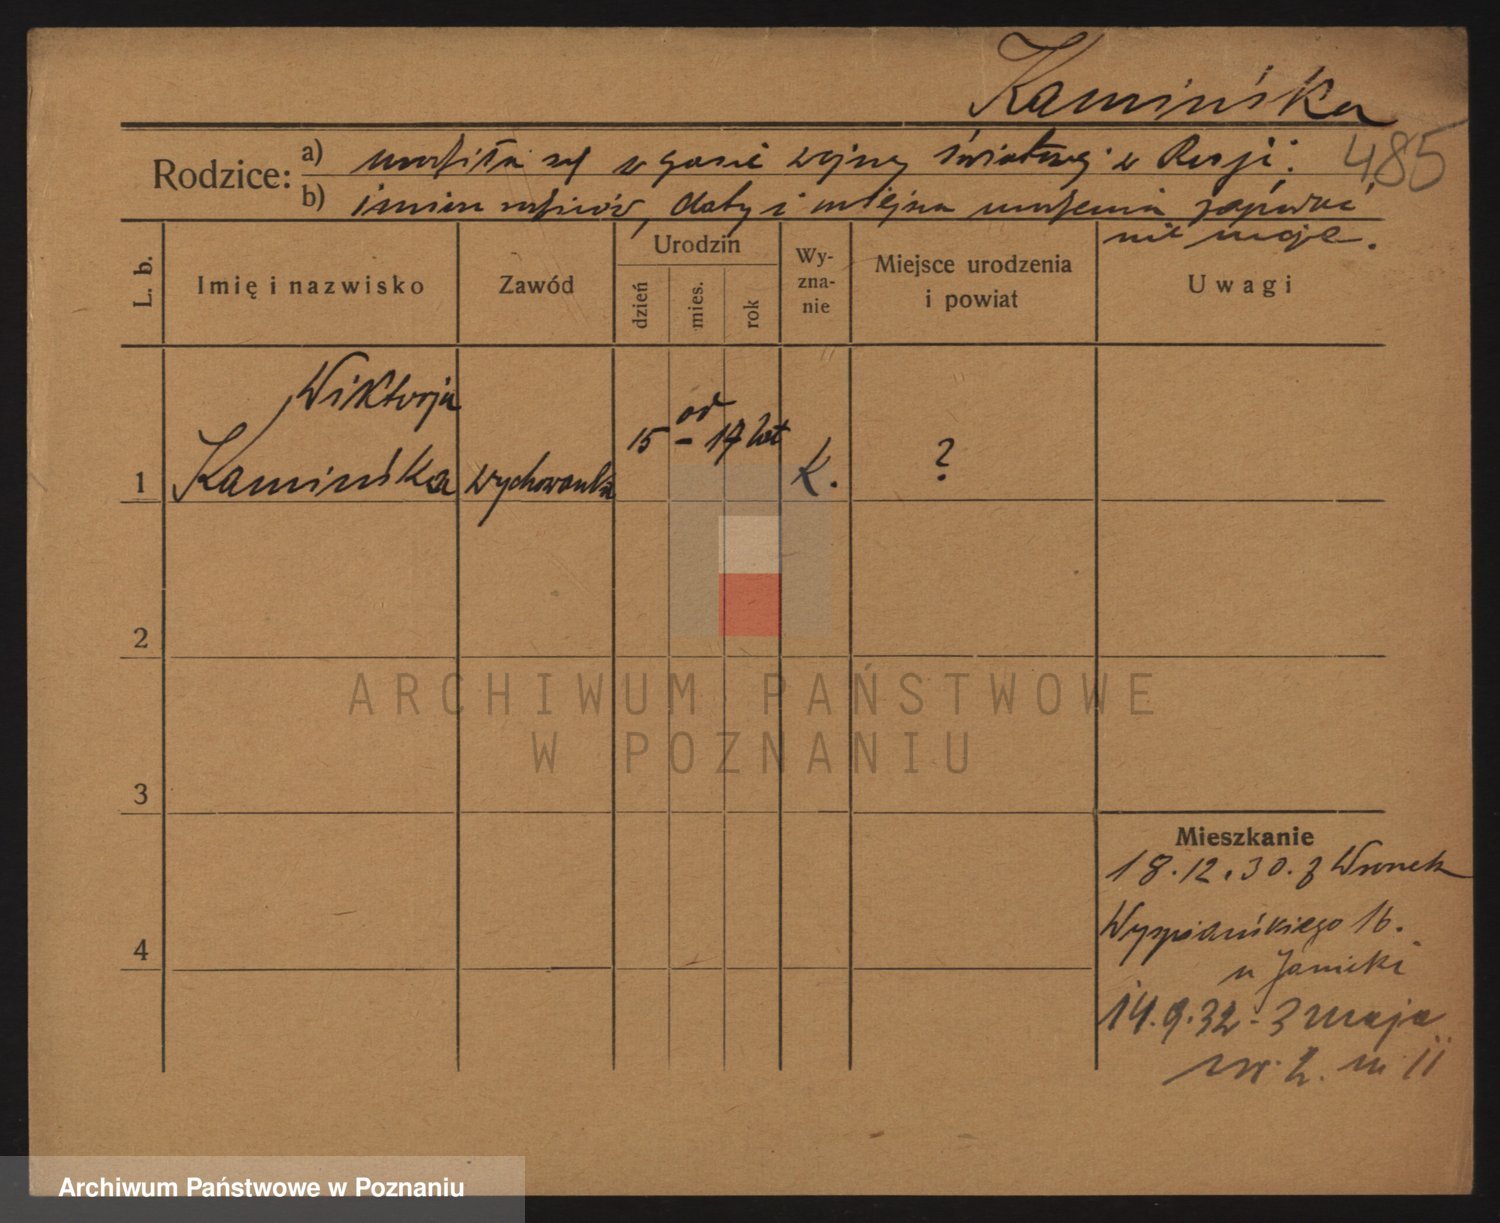 Kamińska
485
Rodzice: a) urodziła się w czasie wojny światowej w Rosji.
b) imion rodziców, daty i miejsca urodzenia podać
nie może.
L. b.
Imię i nazwisko
Zawód
Urodzin
dzień
mies.
rok
Wy-
zna-
nie
Miejsce urodzenia
i powiat
Uwagi
Wiktorja
od
15 – 17 lat
1 Kamińska wychowanka K. ?
2
ARCHIWUM PAŃSTWOWE
W POZNANIU
3
Mieszkanie
18.12.30. z Wronek
4 Wyspiańskiego 16.
u Janicki
14.9.32 - 3 maja
2. m 11
Archiwum Państwowe w Poznaniu